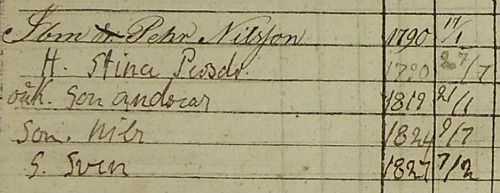 Åbm Pehr Nilsson 1790 17/1
H. Stina Persdr. 1790 27/7
oäk. Son andreas 1819 21/1
Son. Nils 1824 9/7
S. Sven 1827 7/2